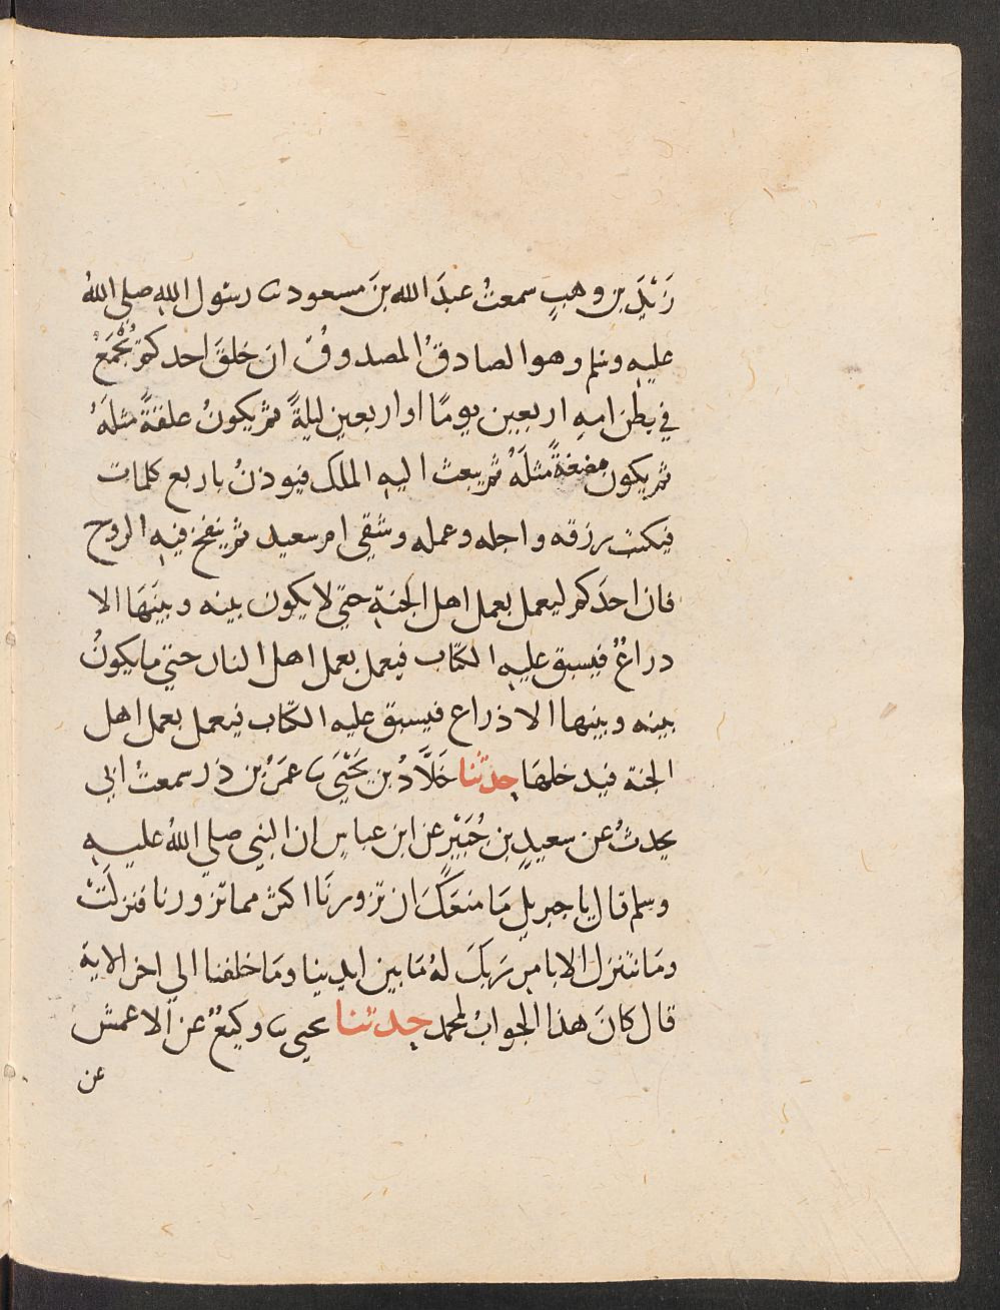 زَيْدَ بن وهبٍ سمعتُ عبدَ الله بنَ مسعود نا رسول الله صلى اللهُ
عليه وسلم وهو الصادقُ المصدوقُ ان خلقَ احدكمْ يُجْمَعُ
في بطن امه اربعين يومًا او اربعين ليلةً ثم يكونُ علقةً مثلَهُ
ثم يكون مضغةً مثلَهُ ثم يبعث اليه الملك فيوذنُ باربع كلمات
فيكتب رزقه واجله وعمله وشقى ام سعيد ثم ينفخ فيه الروح
فان احدَكم ليعمل بعمل اهل الجنة حتى لا يكون بينه وبينَهَا الا
دراعٌ فيسبق عليه الكتاب فيعمل بعمل اهل النار حتى ما يكونُ
بينه وبينها الا ذراع فيسبق عليه الكتاب فيعمل بعمل اهل
الجنة فيدخلهَا حدثنا خَلَّادُ بن يَحْيَى نا عمَرُ بن ذر سمعتُ ابى
يحدثُ عن سعيدِ بن جُبَيْرٍ عن ابن عباسٍ ان النبى صلى اللهُ عليه
وسلم قال يا جبريل مَا منعَكَ ان تزورنَا اكثر مما تزورنا فنزلَتْ
ومَا نتنزل الا بامرِ رَبكَ لهُ مَا بين ايدينا ومَا خلفنا الى اخر الاية
قال كانَ هذا الجوابُ لمحمد حدثنا يحيى نا وكيعٌ عن الاعمش
عن